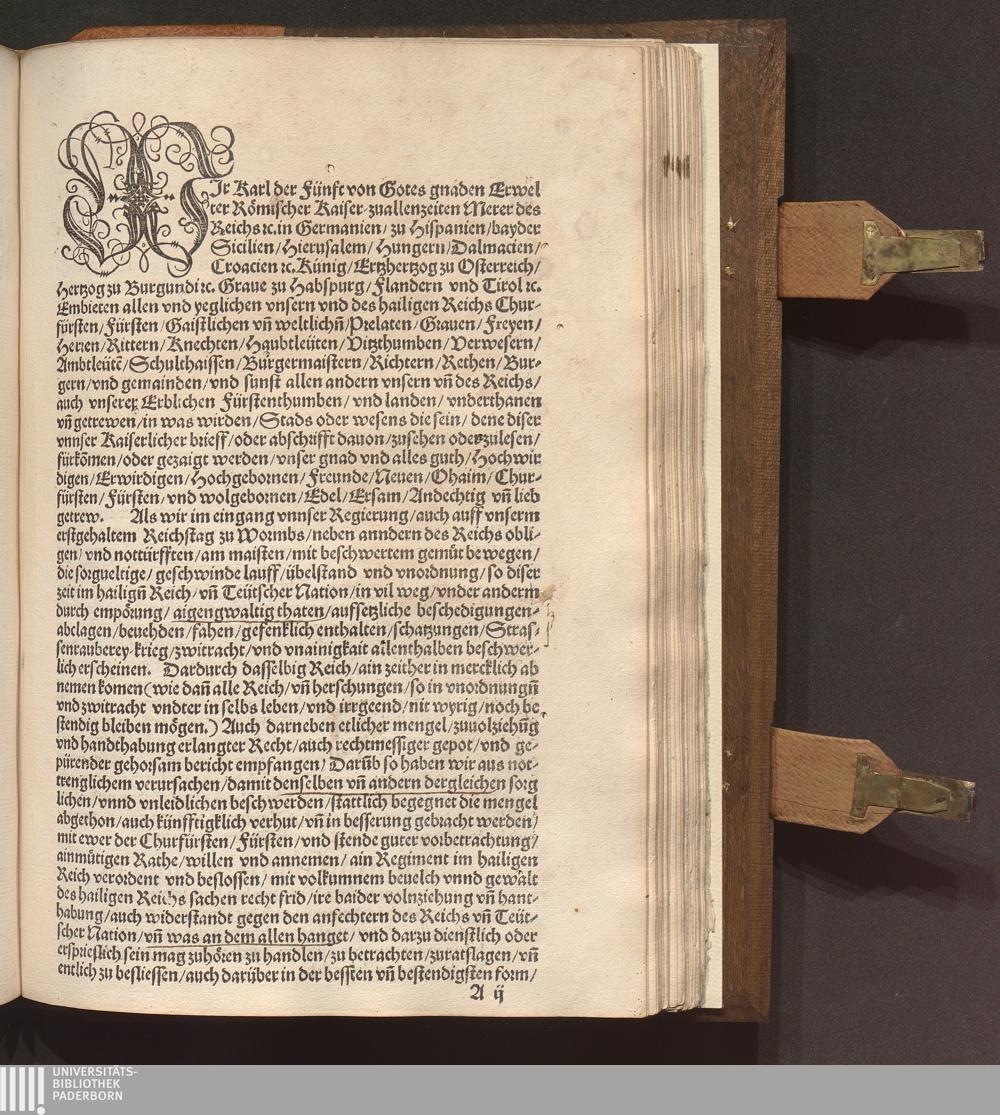 WIr Karl der Fünfft von Gotes gnaden Erwel
ter Römischer Kaiser zuallenzeiten Merer des
Reichs ꝛc. in Germanien/ zu Hispanien/ bayder
Sicilien/ Hierusalem/ Hungern/ Dalmacien/
Croacien ꝛc. Künig/ Ertzhertzog zu Osterreich/
Hertzog zu Burgundi ꝛc. Graue zu Habspurg/ Flandern vnd Tirol ꝛc.
Embieten allen vnd yeglichen vnsern vnd des hailigen Reichs Chur-
fürsten/ Fürsten/ Gaistlichen vñ weltlichñ/ Prelaten/ Grauen/ Freyen/
Herren/ Rittern/ Knechten/ Haubtleüten/ Vitzthumben/ Verwesern/
Ambtleütẽ/ Schulthaissen/ Burgermaistern/ Richtern/ Rethen/ Bur-
gern/ vnd gemainden/ vnd sunst allen andern vnsern vñ des Reichs/
auch vnserer Erblichen Fürstenthumben/ vnd landen/ vnderthanen
vñ getrewen/ in was wirden/ Stads oder wesens die sein/ dene diser
vnnser Kaiserlicher brieff/ oder abschrifft dauon/ zusehen oder zulesen/
fürkõmen/ oder gezaigt werden/ vnser gnad vnd alles guth/ Hochwir
digen/ Erwirdigen/ Hochgebornen/ Freunde/ Neuen/ Ohaim/ Chur-
fürsten/ Fürsten/ vnd wolgebornen/ Edel/ Ersam/ Andechtig vñ lieb
getrew. Als wir im eingang vnnser Regierung/ auch auff vnserm
erstgehaltem Reichstag zu Wormbs/ neben anndern des Reichs obli-
gen/ vnd nottürfften/ am maisten/ mit beschwertem gemüt bewegen/
die sorgueltige/ geschwinde lauff/ übelstand vnd vnordnung/ so diser
zeit im hailigñ Reich/ vñ Teütscher Nation/ in vil weg/ vnder anderm
durch empörung/ aigengwaltig thaten/ auffsetzliche beschedigungen-
abclagen/ beuehden/ fahen/ gefenklich enthalten/ schatzungen/ Stras-
senrauberey krieg/ zwitracht/ vnd vnainigkait allenthalben beschwer-
lich erscheinen. Dardurch dasselbig Reich/ ain zeither in mercklich ab
nemen komen (wie dañ alle Reich/ vñ herschungen/ so in vnordnungñ
vnd zwitracht vndter in selbs leben/ vnd irrgeend/ nit wyrig/ noch be
stendig bleiben mögen.) Auch darneben etlicher mengel/ zuuolziehũg
vnd handthabung erlangter Recht/ auch rechtmessiger gepot/ vnd ge-
pürender gehorsam bericht empfangen/ Darũb so haben wir aus not-
trenglichem verursachen/ damit denselben vñ andern dergleichen sorg
lichen/ vnnd vnleidlichen beschwerden/ stattlich begegnet die mengel
abgethon/ auch künfftigklich verhut/ vñ in besserung gebracht werden/
mit ewer der Churfürsten/ Fürsten/ vnd stende guter vorbetrachtung/
ainmütigen Rathe/ willen vnd annemen/ ain Regiment im hailigen
Reich verordent vnd beslossen/ mit volkumnem beuelch vnnd gewalt
des hailigen Reichs sachen recht frid/ ire baider volnziehung vñ hant-
habung/ auch widerstandt gegen den anfechtern des Reichs vñ Teüt-
scher Nation/ vñ was an dem allen hanget/ vnd darzu dienstlich oder
ersprießlich sein mag zuhören zu handlen/ zu betrachten/ zuratslagen/ vñ
entlich zu besliessen/ auch darüber in der bessten vñ bestendigsten form/
A ij
UNIVERSITÄTS-
BIBLIOTHEK
PADERBORN